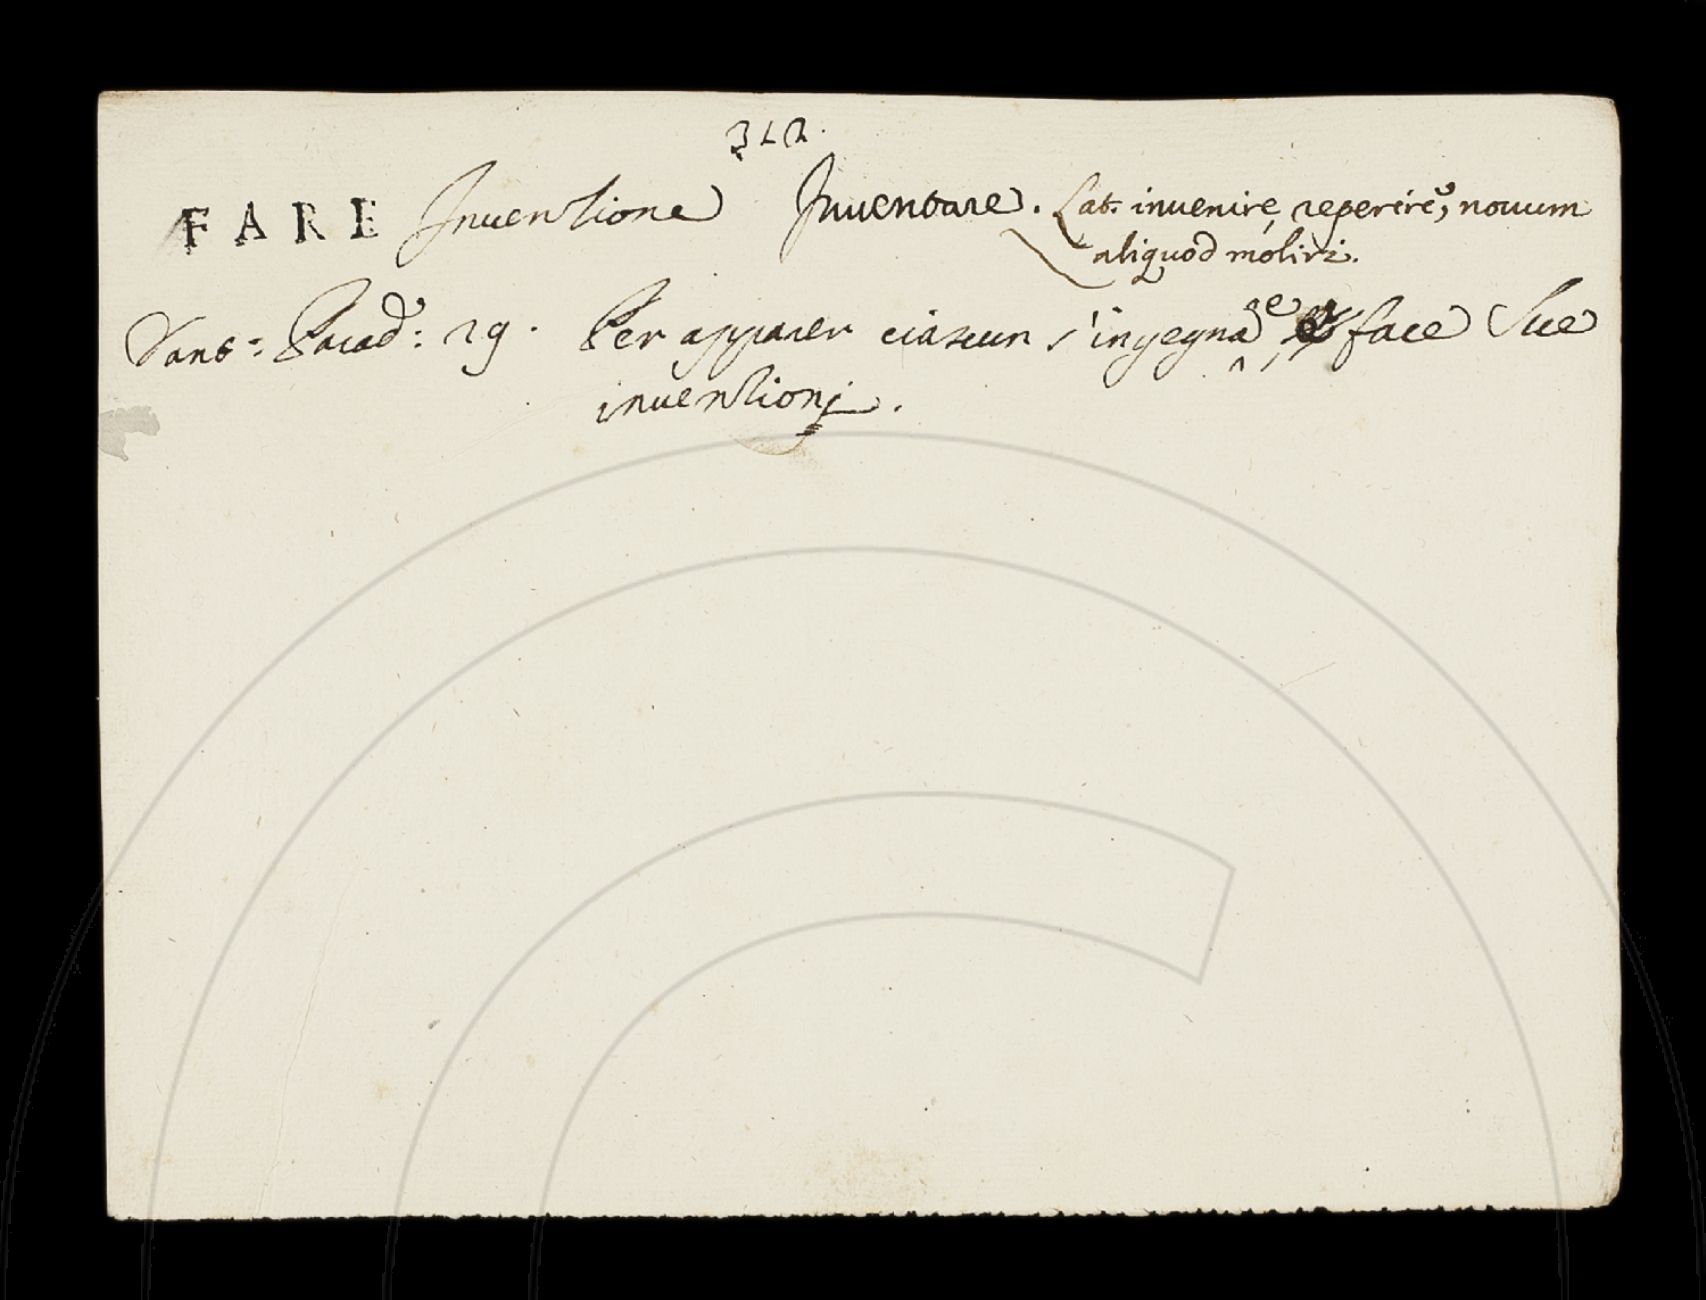 FARE Inuenzione Inuentare. Lat. inuenire, reperire, nouum
aliquod moliri.
Dant: Parad: 29. Per apparer ciascun s'ingegna, e face Sue
inuenzioni.